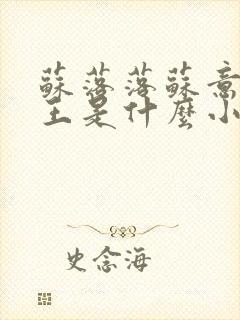 蘇落落蘇意
王是什麼小
史念海